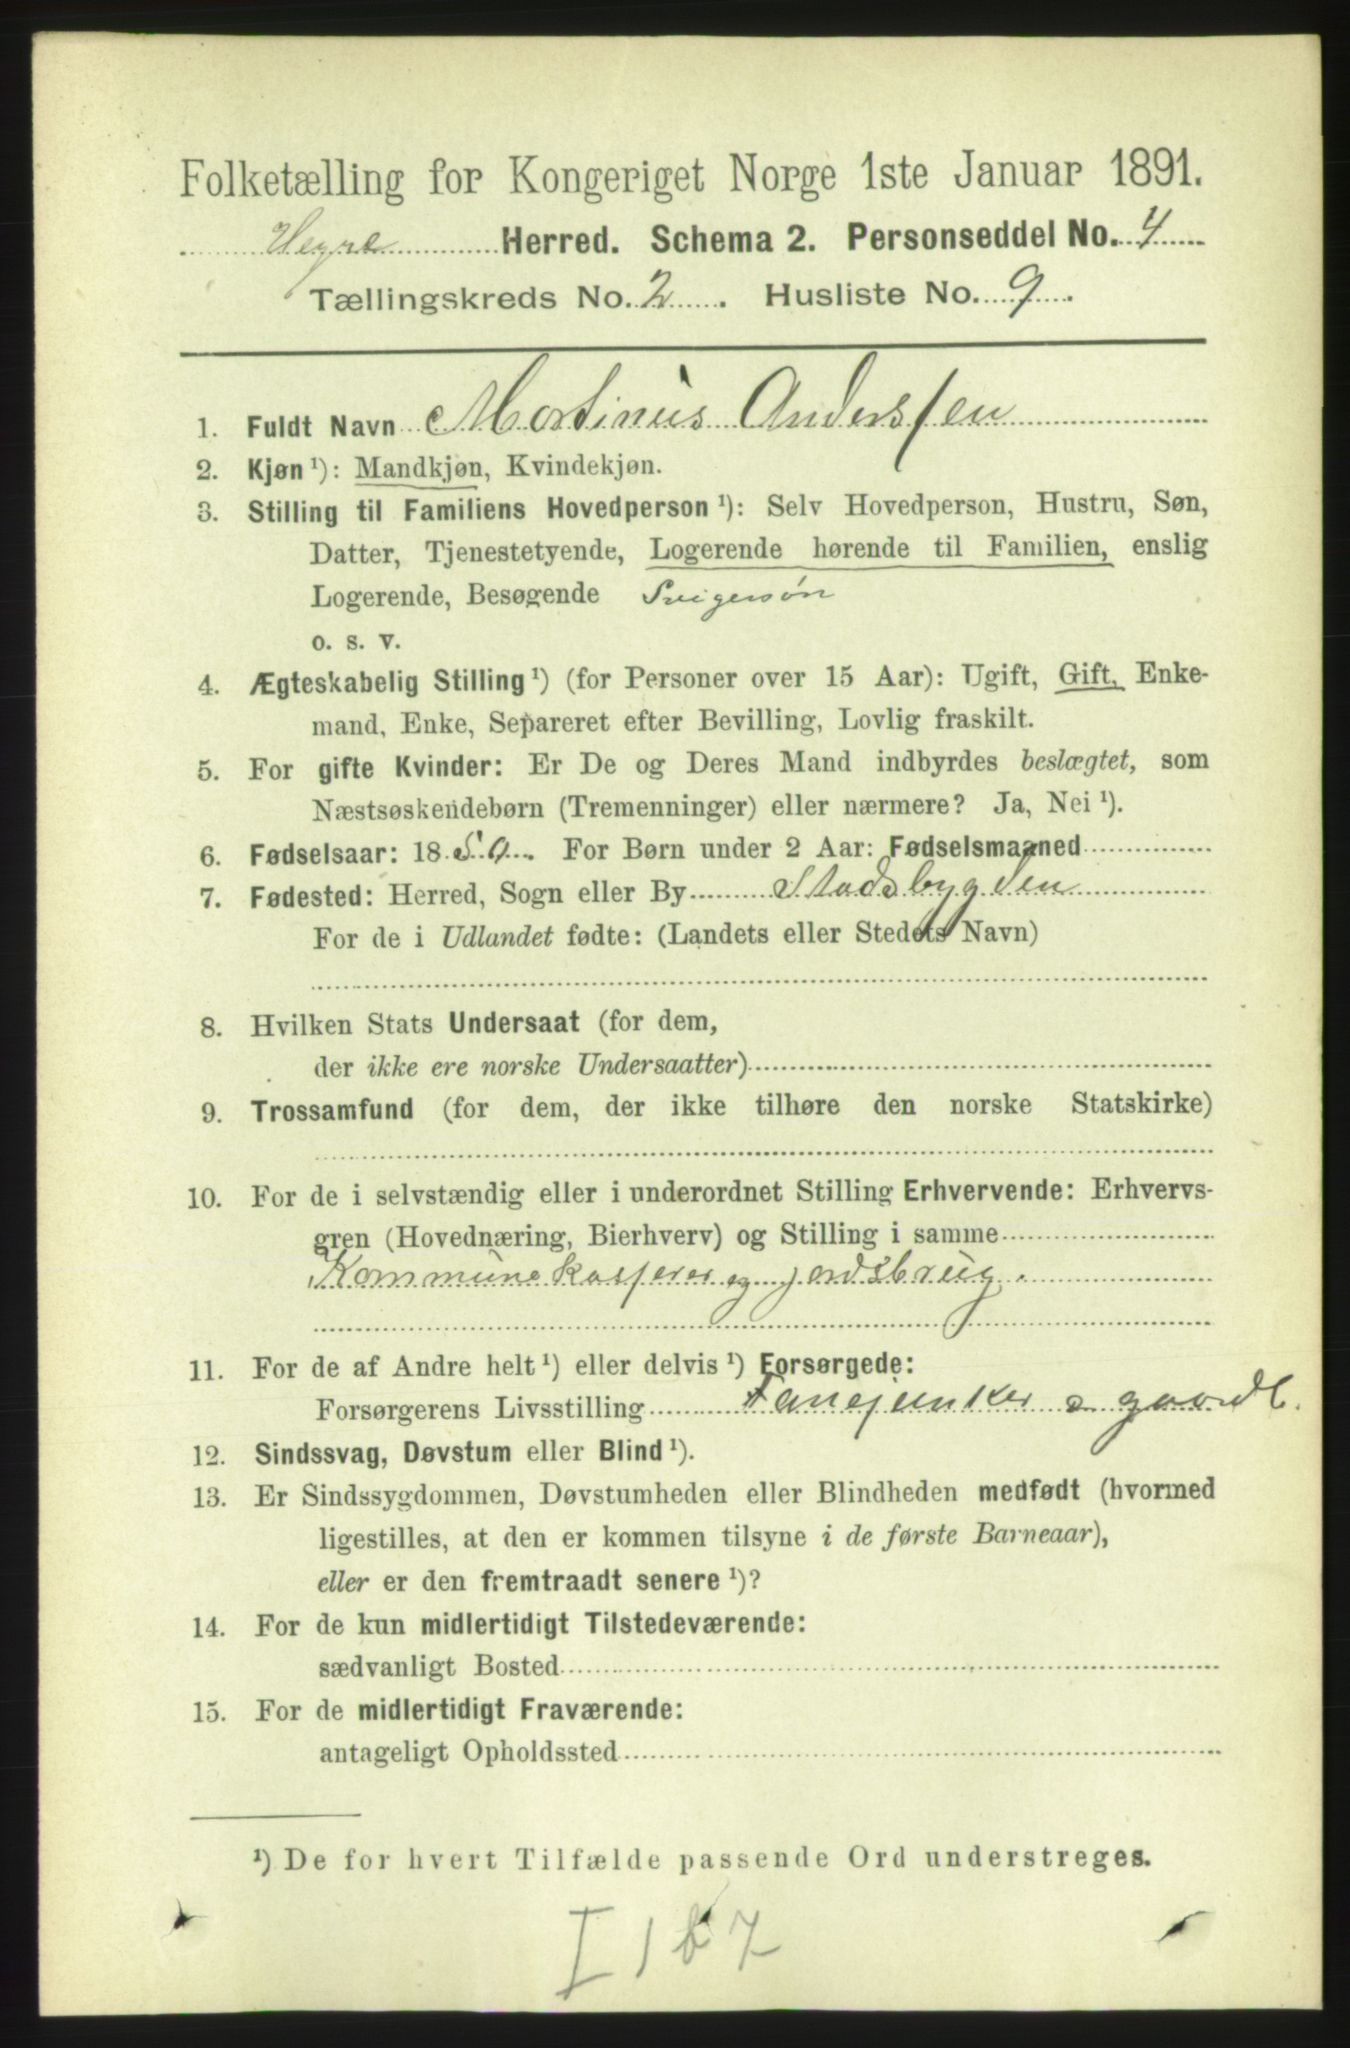 Folketælling for Kongeriget Norge 1ste Januar 1891.
Hegre Herred. Schema 2. Personseddel No. 4
Tællingskreds No. 2. Husliste No. 9.
1. Fuldt Navn Martinus Anderssen
2. Kjøn ¹): Mandkjøn, Kvindekjøn.
3. Stilling til Familiens Hovedperson ¹): Selv Hovedperson, Hustru, Søn,
Datter, Tjenestetyende, Logerende hørende til Familien, enslig
Logerende, Besøgende Svigersøn
o. s. v.
4. Ægteskabelig Stilling ¹) (for Personer over 15 Aar): Ugift, Gift, Enke-
mand, Enke, Separeret efter Bevilling, Lovlig fraskilt.
5. For gifte Kvinder: Er De og Deres Mand indbyrdes beslægtet, som
Næstsøskendebørn (Tremenninger) eller nærmere? Ja, Nei ¹).
6. Fødselsaar: 18 For Børn under 2 Aar: Fødselsmaaned
7. Fødested: Herred, Sogn eller By Stadsbygden
For de i Udlandet fødte: (Landets eller Stedets Navn)
8. Hvilken Stats Undersaat (for dem,
der ikke ere norske Undersaatter)
9. Trossamfund (for dem, der ikke tilhøre den norske Statskirke)
10. For de i selvstændig eller i underordnet Stilling Erhvervende: Erhvervs-
gren (Hovednæring, Bierhverv) og Stilling i samme
Kommunekasserer og jordsbrug.
11. For de af Andre helt ¹) eller delvis ¹) Forsørgede:
Forsørgerens Livsstilling Fanejunker o gaardb.
12. Sindssvag, Døvstum eller Blind ¹).
13. Er Sindssygdommen, Døvstumheden eller Blindheden medfødt (hvormed
ligestilles, at den er kommen tilsyne i de første Barneaar),
eller er den fremtraadt senere ¹)?
14. For de kun midlertidigt Tilstedeværende:
sædvanligt Bosted
15. For de midlertidigt Fraværende:
antageligt Opholdssted
¹) De for hvert Tilfælde passende Ord understreges.
I 167